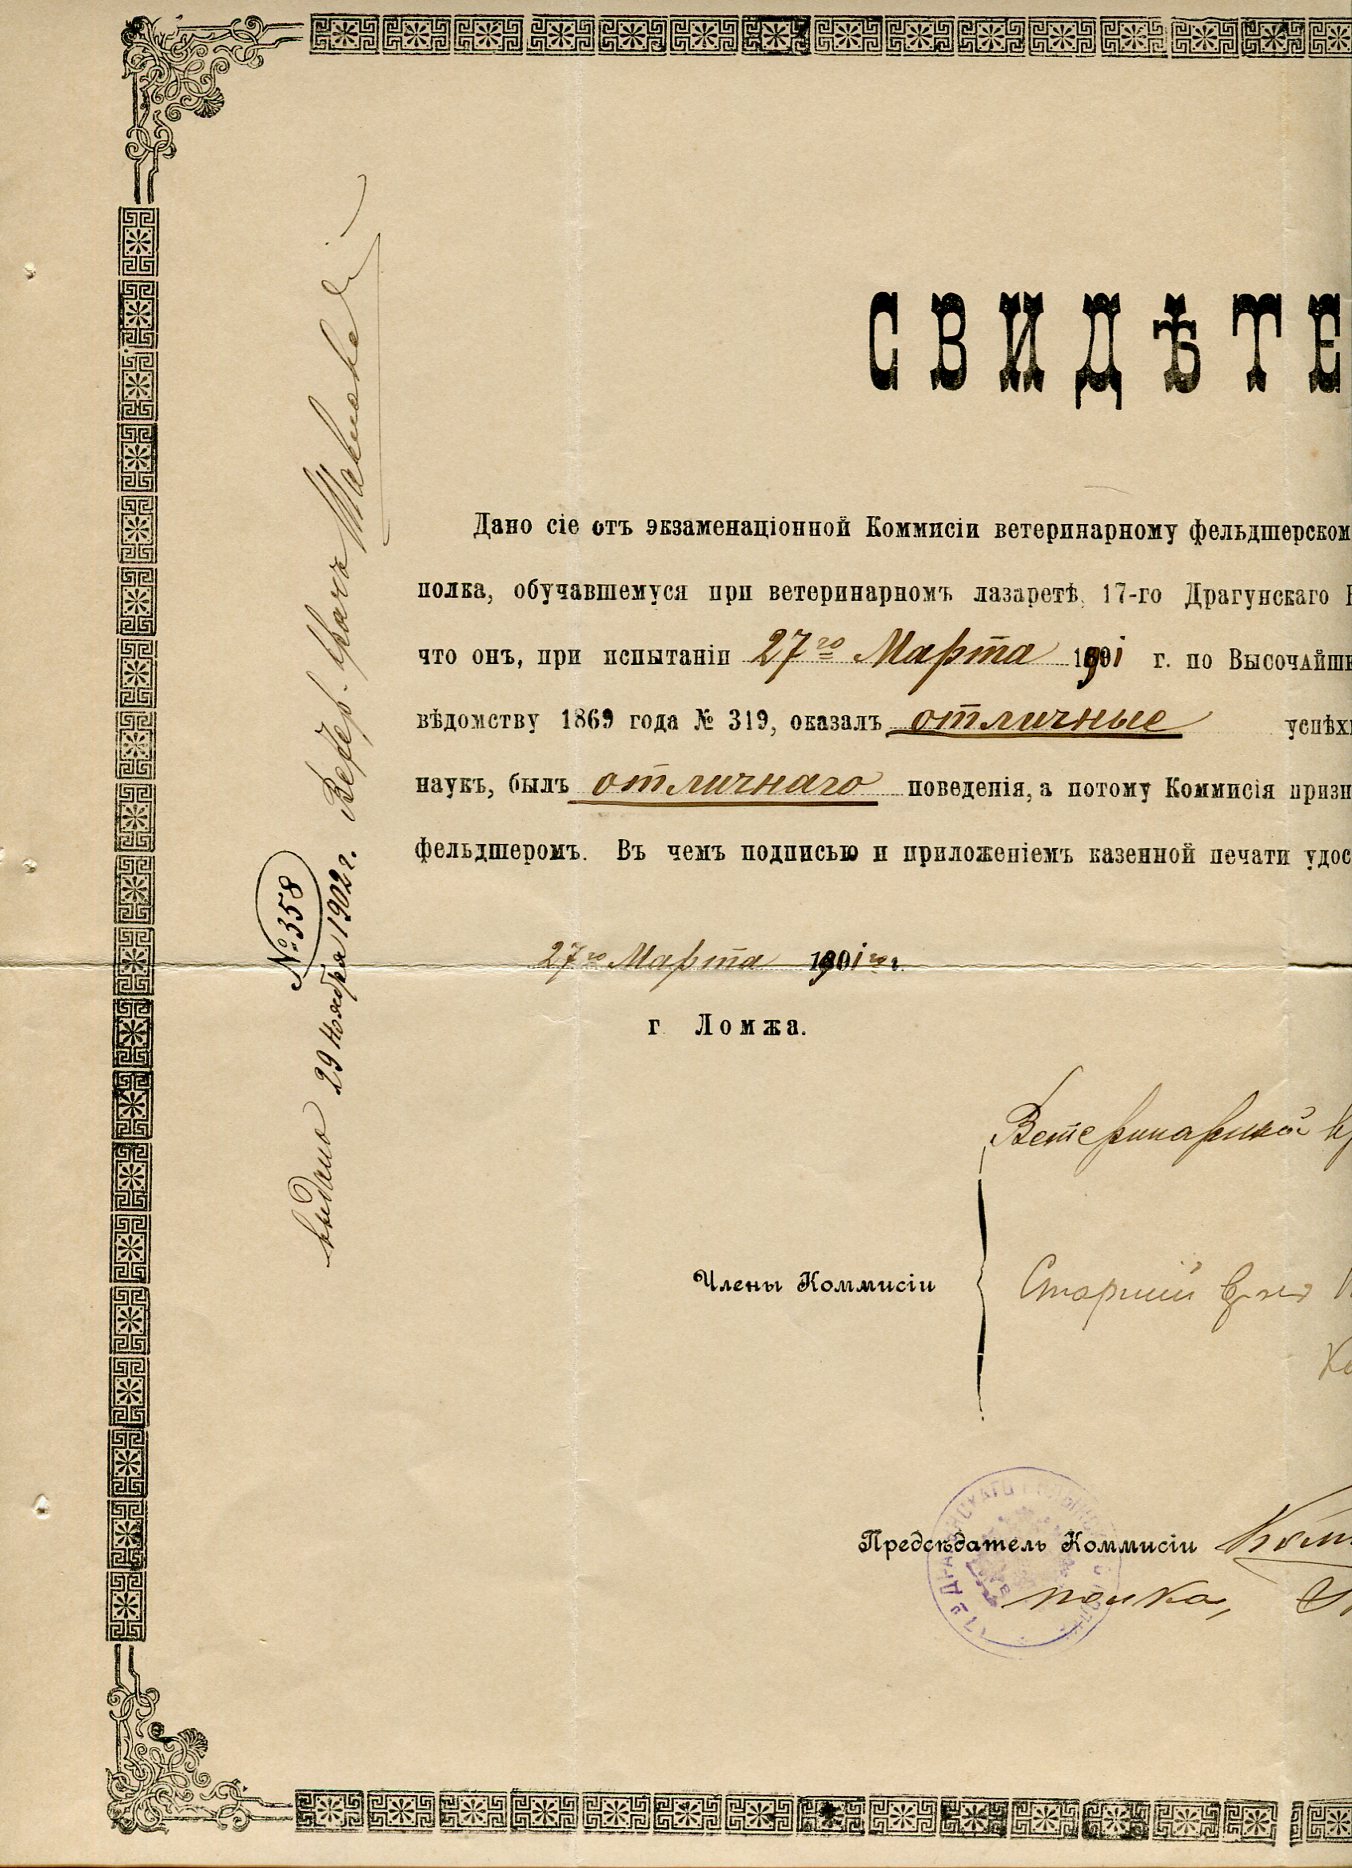 СВИДѢТЕ
Дано сіе отъ экзаменаціонной Коммисіи ветеринарному фельдшерском
полка, обучавшемуся при ветеринарномъ лазаретѣ, 17-го Драгунскаго
что онъ, при испытаніи 27го Марта 1901 г. по Высочайше
вѣдомству 1869 года № 319, оказалъ отличные успѣх
наукъ, былъ отличнаго поведенія, а потому Коммисія призн
фельдшеромъ. Въ чемъ подписью и приложеніемъ казенной печати удос
27го Марта 1901го г.
г Ломжа.
Ветеринарный
Члены Коммисіи
Старшій
Предсѣдатель Коммисіи
полка,
№ 358
выдано 29 Ноября 1902 г. Ветер. врачъ